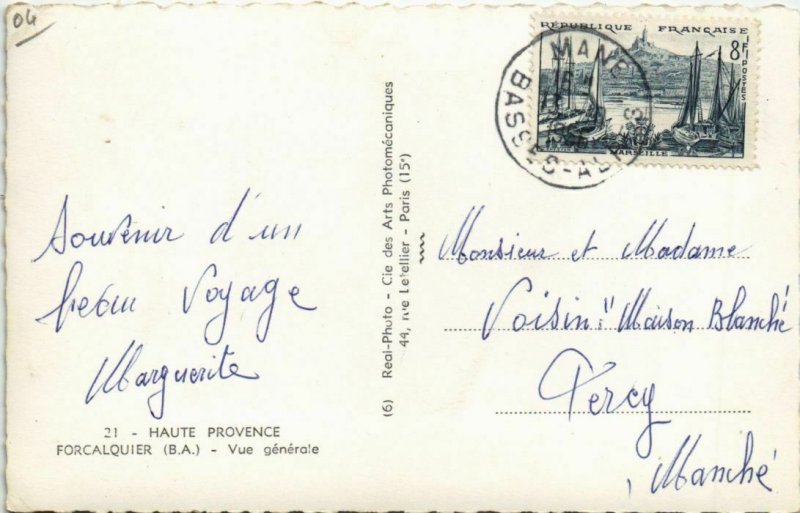 04
Souvenir d'un
beau voyage
Marguerite
21 - HAUTE PROVENCE
FORCALQUIER (B.A.) - Vue générale
(6) Real-Photo - Cie des Arts Photomécaniques
44, rue Letellier - Paris (15e)
RÉPUBLIQUE FRANÇAISE
8F
POSTES
MARSEILLE
MANE
BASSES-ALPES
Monsieur et Madame
Voisin "Maison Blanché
Percy
Manché